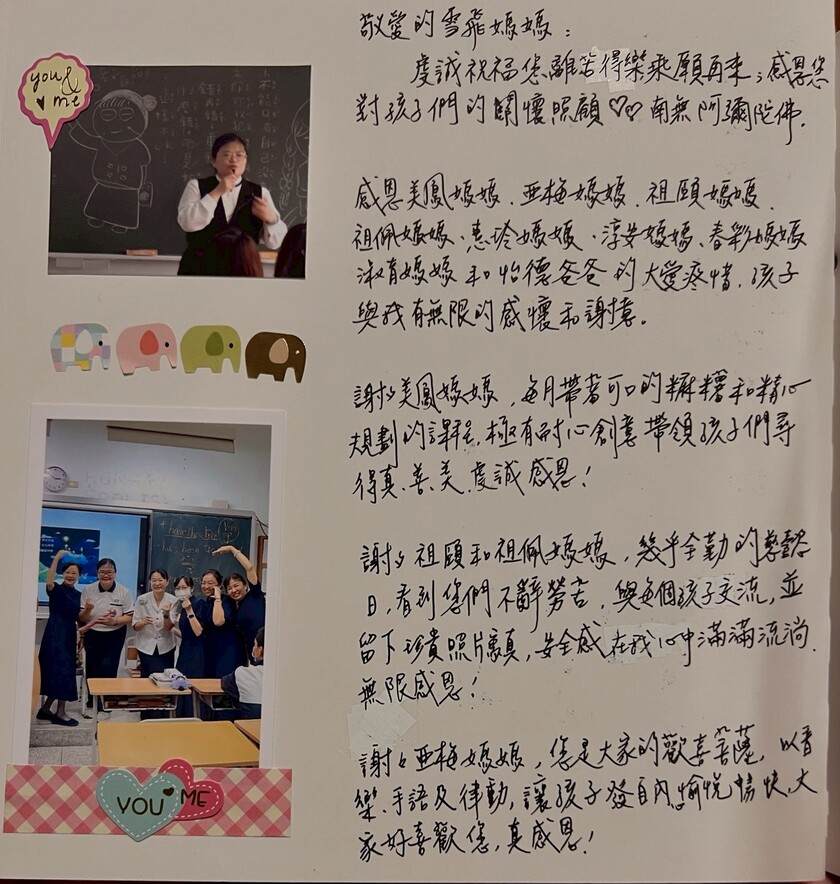 敬愛的雪飛媽媽：
虔誠祝福您離苦得樂乘願再來；感恩您
對孩子們的關懷照顧♡♡南無阿彌陀佛.
感恩美鳳媽媽.亞梅媽媽.祖頤媽媽.
祖佩媽媽、惠玲媽媽、淳安媽媽、春彩媽媽
淑有媽媽和怡德爸爸的大愛疼惜.孩子
與我有無限的感懷和謝意。
謝謝美鳳媽媽，每月帶著可口的麻糬和精心
規劃的課程.極有耐心創意帶領孩子們尋
得真.善.美.虔誠感恩！
謝謝祖頤和祖佩媽媽，幾乎全勤的懿
日，看到您們不辭勞苦，與每個孩子交流，並
留下珍貴照片，安全感在我心中滿滿流淌.
無限感恩！
謝謝亞梅媽媽，您是大家的歡喜菩薩，以音
樂、手語及律動，讓孩子發自內心愉悅暢快，大
家好喜歡您，真感恩！
you &
♥ me
YOU ♥ ME